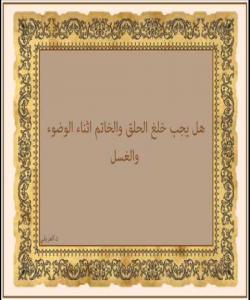 هل يجب خلغ الحلق والخاتم اثناء الوضوء
والغسل